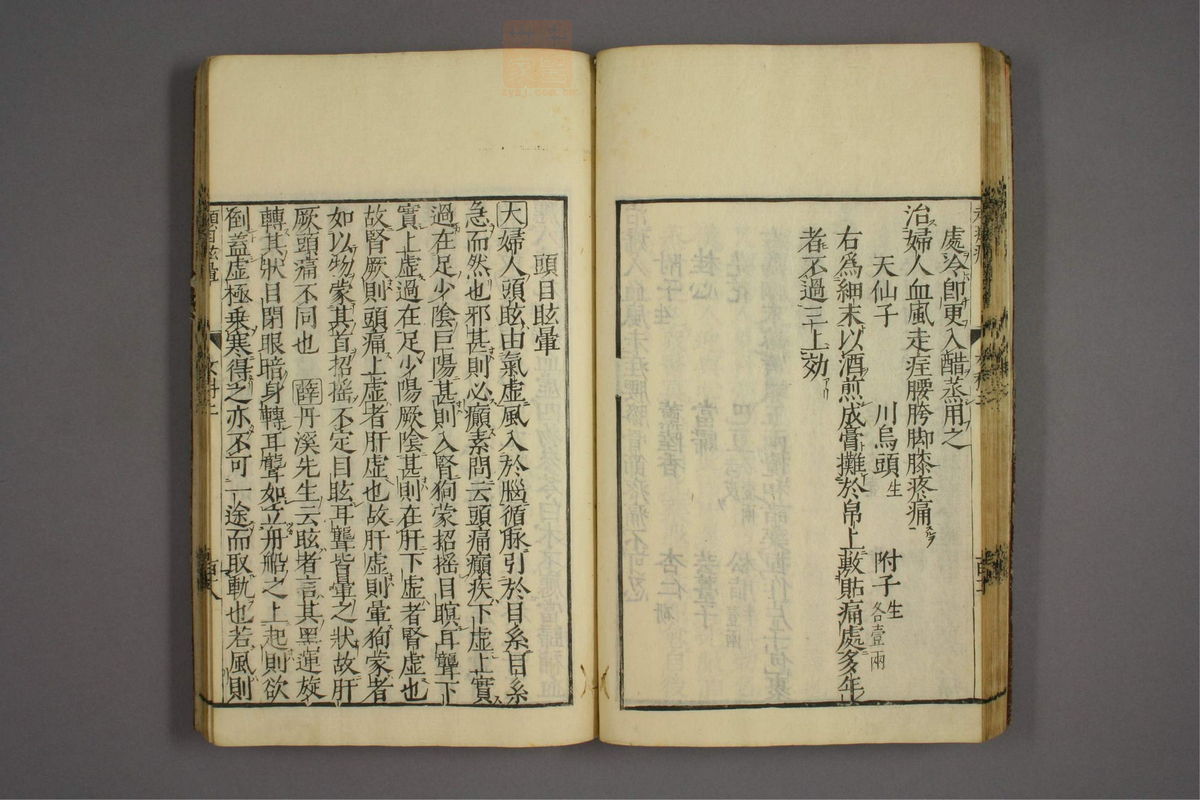 處冷卽更入醋蒸用之
治婦人血風走疰腰胯脚膝疼痛
天仙子 川烏頭生 附子生各壹兩
右爲細末以酒煎成膏攤於帛上敷貼痛處多年
者不過三上効
頭目眩暈
大婦人頭眩由氣虛風入於腦循脉引於目系目系
急而然也邪甚則必癲素問云頭痛癲疾下虛上實
過在足少陰巨陽甚則入腎狥蒙招摇目瞑耳聾下
實上虛過在足少陽厥陰甚則在肝下虛者腎虛也
故腎厥則頭痛上虛者肝虛也故肝虛則暈狥蒙者
如以物蒙其首招摇不定目眩耳聾皆暈之狀故肝
厥頭痛不同也 薛丹溪先生云眩者言其黑運旋
轉其狀目閉眼暗身轉耳聾如立舟船之上起則欲
倒蓋虛極乗寒得之亦不可一途而取軌也若風則
頭目眩暈